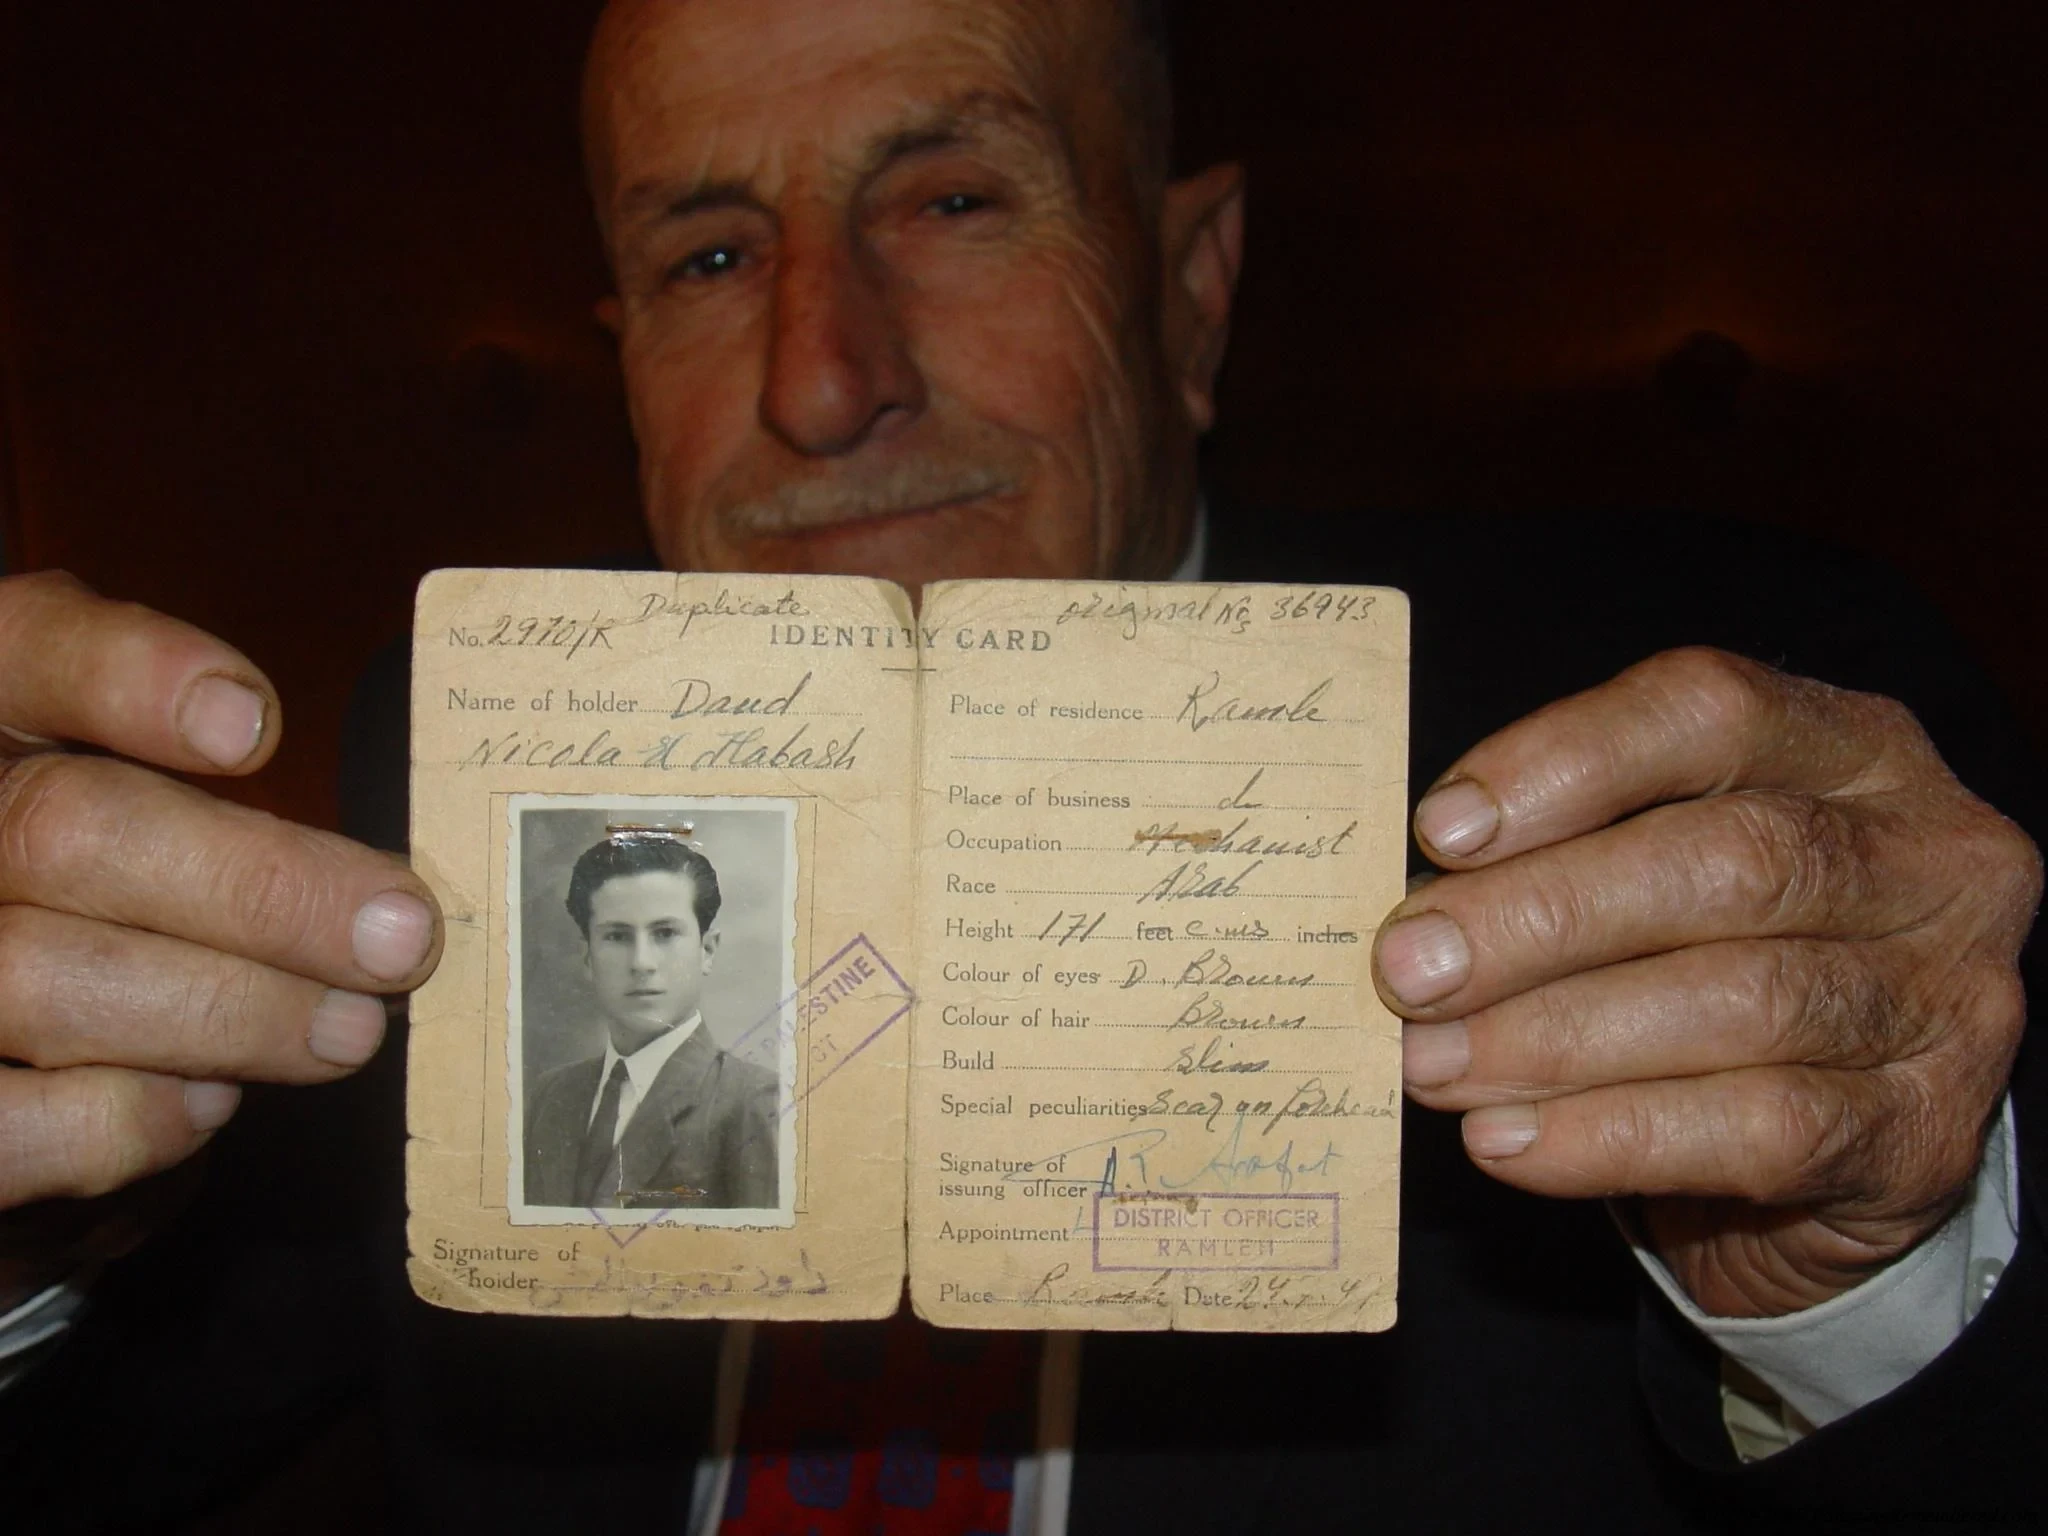 Duplicate
No. 2970/R
IDENTITY CARD
original No 36943
Name of holder Daud
Nicola H Habash
PALESTINE
Signature of
holder
Place of residence Ramle
Place of business do
Occupation Mechanist
Race Arab
Height 171 feet c.ms inches
Colour of eyes D. Brown
Colour of hair Brown
Build Slim
Special peculiarities Scar on forehead
Signature of
issuing officer
Appointment
DISTRICT OFFICER
RAMLEH
Place Ramle Date